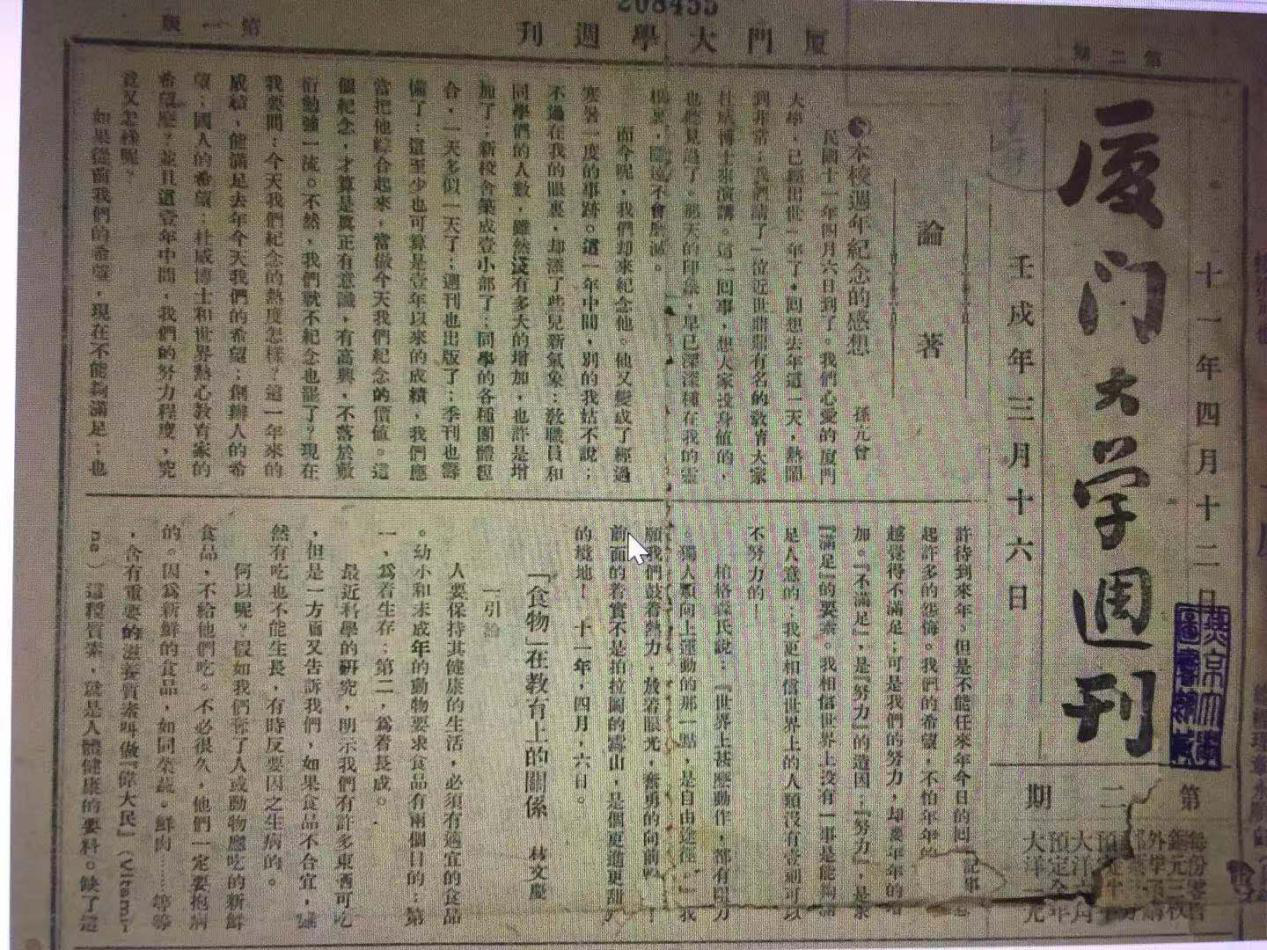 208455
第二期
厦門大學週刊
第一版
厦门大学週刊
十一年四月十二日
壬戌年三月十六日
燕京大學圖書館藏
第二期
大洋一元
論著
●本校週年紀念的感想 孫亢曾
民國十一年四月六日到了。我們心愛的厦門
大學,已經出世一年了。回想去年這一天,熱鬧
到非常;我們請了一位近世鼎鼎有名的教育大家
杜威博士來演講。這一回事,想大家設身値的,
也應見過了。那天的印象,早已深深種在我的靈
裏,永遠不會磨滅。
而今呢,我們却來紀念他。他又變成了經過
寒暑一度的事跡。這一年中間,別的我姑不說;
不過在我的眼裏,却漾了些兒新氣象:教職員和
同學們的人數,雖然沒有多大的增加,也許是增
加了;新校舍築成壹小部了;同學的各種團體組
合,一天多似一天了;週刊也出版了;季刊也籌
備了;這至少也可算是壹年以來的成績,我們應
當把他綜合起來,當做今天我們紀念的價値。這
個紀念,才算是眞正有意識,有高興,不落於敷
衍勉強一流。不然,我們就不紀念也罷了?現在
我要問:今天我們紀念的熱度怎樣?這一年來的
成績,能滿足去年今天我們的希望;創辦人的希
望;國人的希望;杜威博士和世界熱心教育家的
希望麼?並且這壹年中間,我們的努力程度,究
竟又怎樣呢?
如果從前我們的希望,現在不能夠滿足;也
許待到來年。但是不能任來年今日的回
起許多的怨悔。我們的希望,不怕年年的
越覺得不滿足;可是我們的努力,却要年年的增
加。『不滿足』,是『努力』的造因;『努力』,是求
『滿足』的要素。我相信世界上沒有一事是能夠滿
足人意的;我更相信世界上的人類沒有壹刻可以
不努力的!
柏格森氏說:『世界上甚麼動作,都有阻力
。獨人類向上運動的那一點,是自由途徑。』我
願我們鼓着熱力,放着眼光,奮勇的向前
前面的着實不是柏拉圖的靄山,是個更適更甜
的境地! 十一年,四月,六日。
「食物」在教育上的關係 林文慶
一引論
人要保持其健康的生活,必須有適宜的食品
。幼小和未成年的動物要求食品有兩個目的:第
一,爲着生存;第二,爲着長成。
最近科學的研究,明示我們有許多東西可吃
,但是一方面又告訴我們,如果食品不合宜,雖
然有吃也不能生長,有時反要因之生病的。
何以呢?假如我們奪了人或動物應吃的新鮮
食品,不給他們吃。不必很久,他們一定要抱病
的。因爲新鮮的食品,如同菜蔬。鮮肉……等等
,含有重要的滋養質素叫做『偉大民』(Vitami-
ne)這種質素,就是人體健康的要料。缺了這